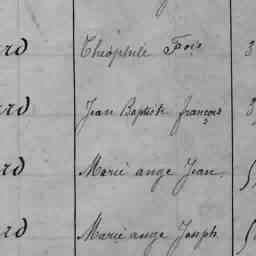 rd Théophile Fois 3
rd Jean Baptiste françois 3
rd Marie ange Jean
rd Marie ange Joseph